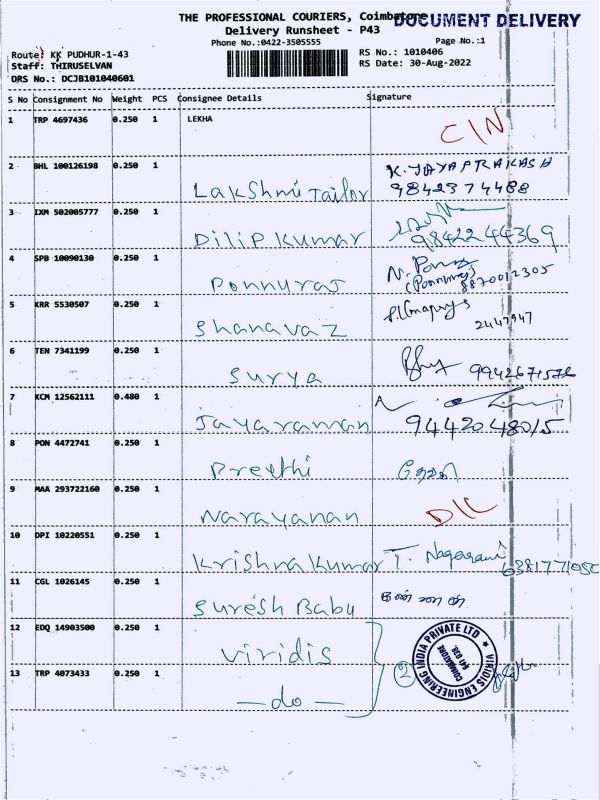 THE PROFESSIONAL COURIERS, Coimbatore
DOCUMENT DELIVERY
Delivery Runsheet - P43
Phone No.:0422-3505555
Page No.:1
Route: KK PUDHUR-1-43
RS No.: 1010406
Staff: THIRUSELVAN
RS Date: 30-Aug-2022
DRS No.: DCJB101040601
S No Consignment No Weight PCS Consignee Details Signature
1 TRP 4697436 0.250 1 LEKHA C/N
2 BHL 100126198 0.250 1 Lakshmi Tailor K. JAYAPRAKASH
9842374488
3 IXM 502005777 0.250 1 Dilip Kumar
9842244369
4 SPB 10090130 0.250 1 Ponnuraj N. Ponnu
8870012305
5 KRR 5530507 0.250 1 Shanavaz
2447947
6 TEN 7341199 0.250 1 Surya
7 KCM 12562111 0.480 1 Jayaraman
9442048015
8 PON 4472741 0.250 1 Preethi
9 MAA 293722160 0.250 1 Narayanan D/L
10 DPI 10220551 0.250 1 Krishna Kumar T. Nagarani
6381771050
11 CGL 1026145 0.250 1 Suresh Babu
12 EDQ 14903500 0.250 1 Viridis
13 TRP 4073433 0.250 1 — do —
2
VIRIDIS ENGINEERING INDIA PRIVATE LTD
COIMBATORE